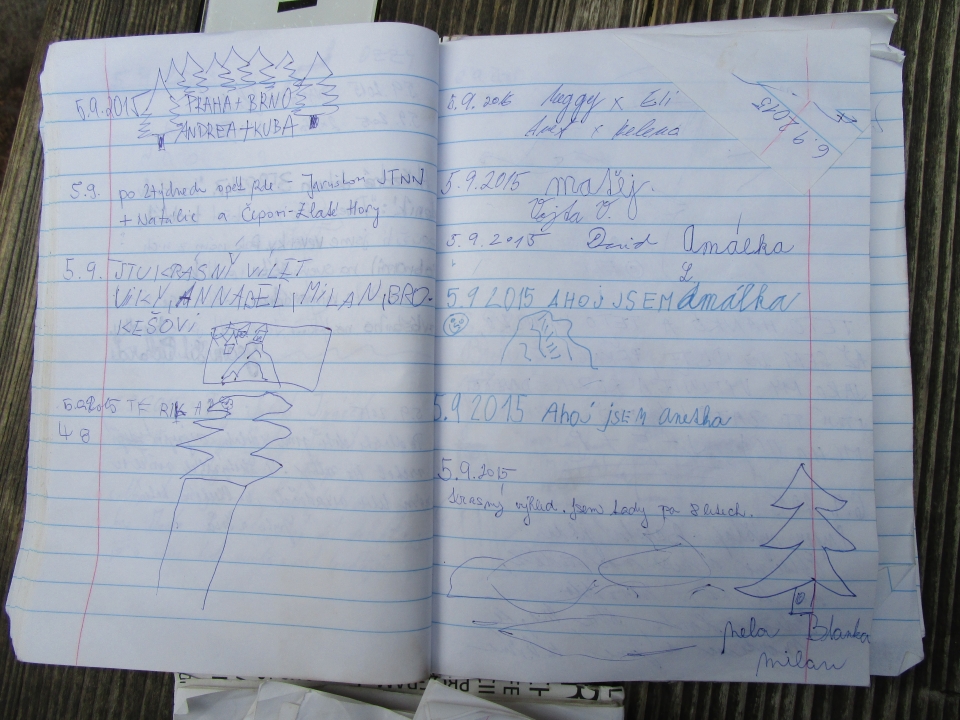 5.9.2015
PRAHA + BRNO
ANDREA + KUBA
5.9. po 2týdnech opět zde - Jaroslav JTNN
+ Natálie a Čipon - Zlaté Hory
5.9. JTU KRASNÝ VILET
VIKY, ANNABEL, MILAN, BRO-
KEŠOVI
5.9.2015 TE RK A
48
5.9.2015 Meggy x Eli
Alex x Helena
6.9.2015
5.9.2015 Matěj.
Vojta V.
5.9.2015 David Amálka
5.9 2015 AHOJ JSEM Amálka
5.9 2015 Ahoj jsEM anetka
5.9.2015
krasný výhled. Jsem tady po 8 letech.
Nela Blanka
milan